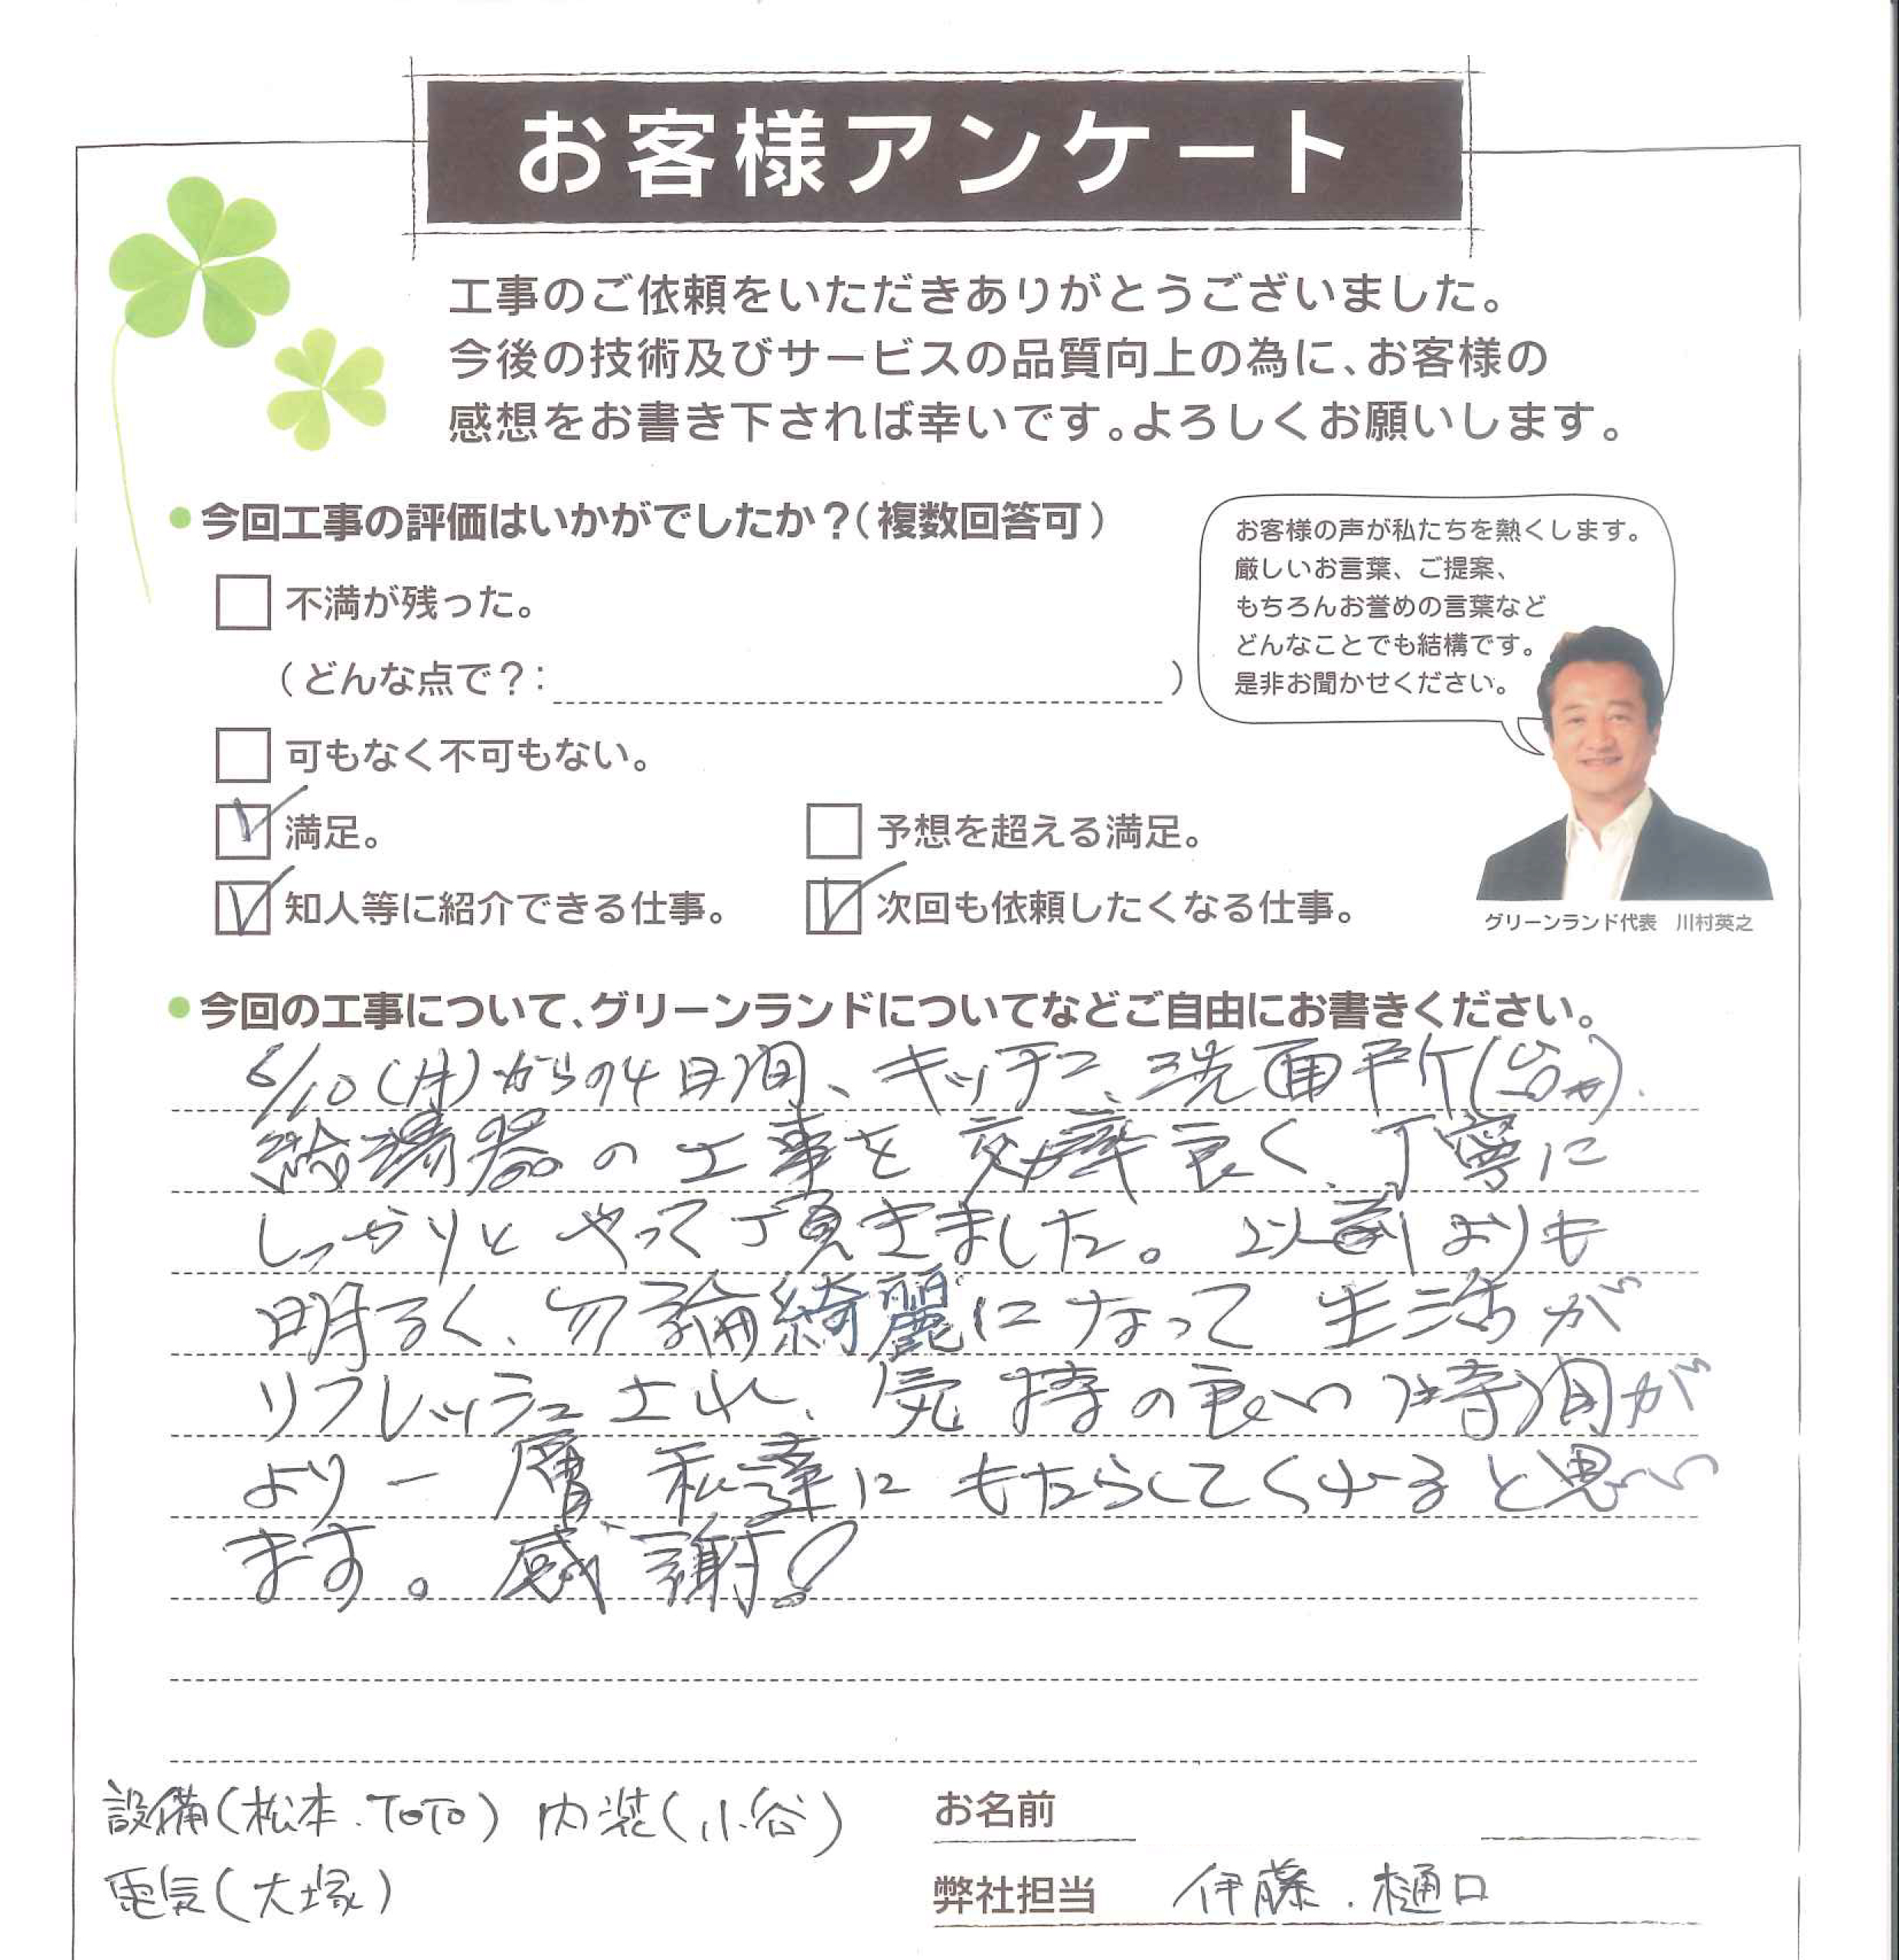 お客様アンケート
工事のご依頼をいただきありがとうございました。
今後の技術及びサービスの品質向上の為に、お客様の
感想をお書き下されば幸いです。よろしくお願いします。
●今回工事の評価はいかがでしたか？(複数回答可)
不満が残った。
(どんな点で？: )
可もなく不可もない。
満足。
予想を超える満足。
知人等に紹介できる仕事。
次回も依頼したくなる仕事。
お客様の声が私たちを熱くします。
厳しいお言葉、ご提案、
もちろんお誉めの言葉など
どんなことでも結構です。
是非お聞かせください。
グリーンランド代表　川村英之
●今回の工事について、グリーンランドについてなどご自由にお書きください。
6/10(月)からの4日間、キッチン、洗面所(台も).
給湯器の工事を効率良く、丁寧に
しっかりと やって頂きました。以前よりも
明るく、勿論綺麗になって 生活が
リフレッシュされ、気持の良い時間が
より一層 私達に もたらしてくれると思い
ます。感謝!
設備(松本.TOTO) 内装(小谷)
電気(大塚)
お名前
弊社担当 伊藤.樋口